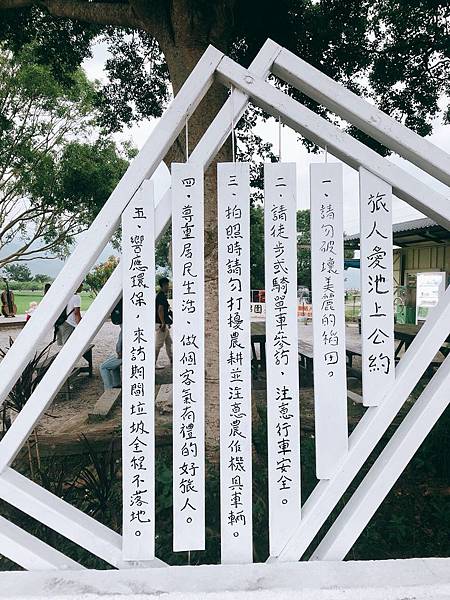 旅人愛池上公約
一、請勿破壞美麗的稻田。
二、請徒步或騎單車參訪，注意行車安全。
三、拍照時請勿打擾農耕並注意農作機具車輛。
四、尊重居民生活、做個客氣有禮的好旅人。
五、響應環保，來訪期間垃圾全程不落地。